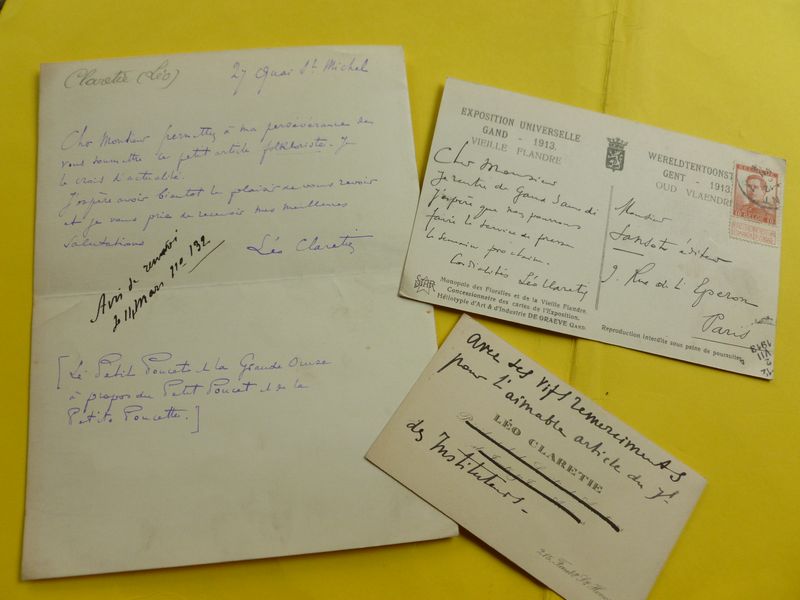 Claretie (Léo)
27 Quai St Michel
Cher Monsieur permettez à ma persévérance de
vous soumettre ce petit article folkloriste. Je
le crois d'actualité.
J'espère avoir bientôt le plaisir de vous revoir
et je vous prie de recevoir mes meilleures
salutations
Léo Claretie
Avis de
le 14 Mars 132
[Le Petit Poucet et la Grande Ourse
à propos du Petit Poucet et de la
Petite Poucette.]
EXPOSITION UNIVERSELLE
GAND - 1913.
VIEILLE FLANDRE
WERELDTENTOONST
GENT - 1913
OUD VLAENDR
Cher Monsieur
Je rentre de Gand Samedi
J'espère que nous pourrons
faire le service de presse
la semaine prochaine.
Cordialités Léo Claretie
Monsieur
Sansot éditeur
9 Rue de l'Eperon
Paris
STAR
Monopole des Floralies et de la Vieille Flandre.
Concessionnaire des cartes de l'Exposition.
Héliotypie d'Art & d'Industrie DE GRAEVE GAND
Reproduction interdite sous peine de poursuites
avec ses vifs remerciements
pour l'aimable article du Jl
des Instituteurs.
LÉO CLARETIE